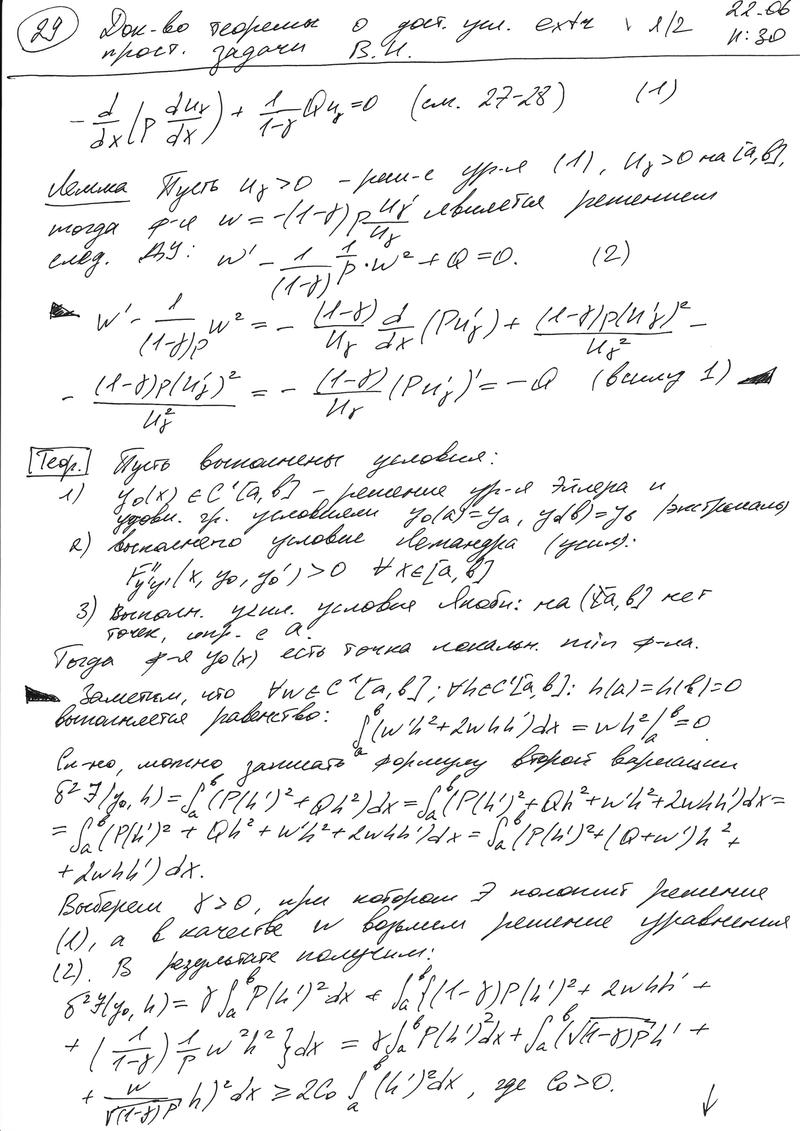 29 Док-во теоремы о дост. усл. extr 1/2 22-06
прост. задачи В.И. 11:30
- d/dx (P du_γ/dx) + 1/(1-γ) Q u_γ = 0 (см. 27-28) (1)
Лемма Пусть u_γ > 0 - реш-е ур-я (1), u_γ > 0 на [a,b],
тогда ф-я w = -(1-γ) P u_γ'/u_γ является решением
след. ДУ: w' - 1/(1-γ) 1/P · w² + Q = 0. (2)
w' - 1/((1-γ)P) w² = - (1-γ)/u_γ d/dx (P u'_γ) + (1-γ)P(u'_γ)²/u_γ² -
- (1-γ)P(u'_γ)²/u_γ² = - (1-γ)/u_γ (P u'_γ)' = -Q (в силу 1)
Теор. Пусть выполнены условия:
1) y₀(x) ∈ C'[a,b] - решение ур-я Эйлера и
удовл. гр. условиям y₀(a)=y_a, y₀(b)=y_b (экстремаль)
2) выполнено условие Лежандра (усил):
F''_{y'y'}(x, y₀, y₀') > 0 ∀x∈[a,b]
3) Выполн. усил. условие Якоби: на [a,b] нет
точек, сопр. с a.
Тогда ф-я y₀(x) есть точка локальн. min ф-ла.
Заметим, что ∀w∈C¹[a,b]; ∀h∈C'[a,b]: h(a)=h(b)=0
выполняется равенство: ∫_a^b (w'h²+2whh')dx = wh²|_a^b = 0.
Сл-но, можно записать формулу второй вариации
δ²J(y₀,h) = ∫_a^b (P(h')²+Qh²)dx = ∫_a^b (P(h')²+Qh²+w'h²+2whh')dx =
= ∫_a^b (P(h')² + Qh² + w'h² + 2whh')dx = ∫_a^b (P(h')²+(Q+w')h² +
+ 2whh')dx.
Выберем γ>0, при котором ∃ положит решение
(1), а в качестве w возьмем решение уравнения
(2). В результате получим:
δ²J(y₀,h) = γ∫_a^b P(h')²dx + ∫_a^b {(1-γ)P(h')² + 2whh' +
+ (1/(1-γ)) 1/P w²h²}dx = γ∫_a^b P(h')²dx + ∫_a^b (√((1-γ)P) h' +
+ w/√((1-γ)P) h)²dx ≥ 2C₀ ∫_a^b (h')²dx, где C₀>0.
↓